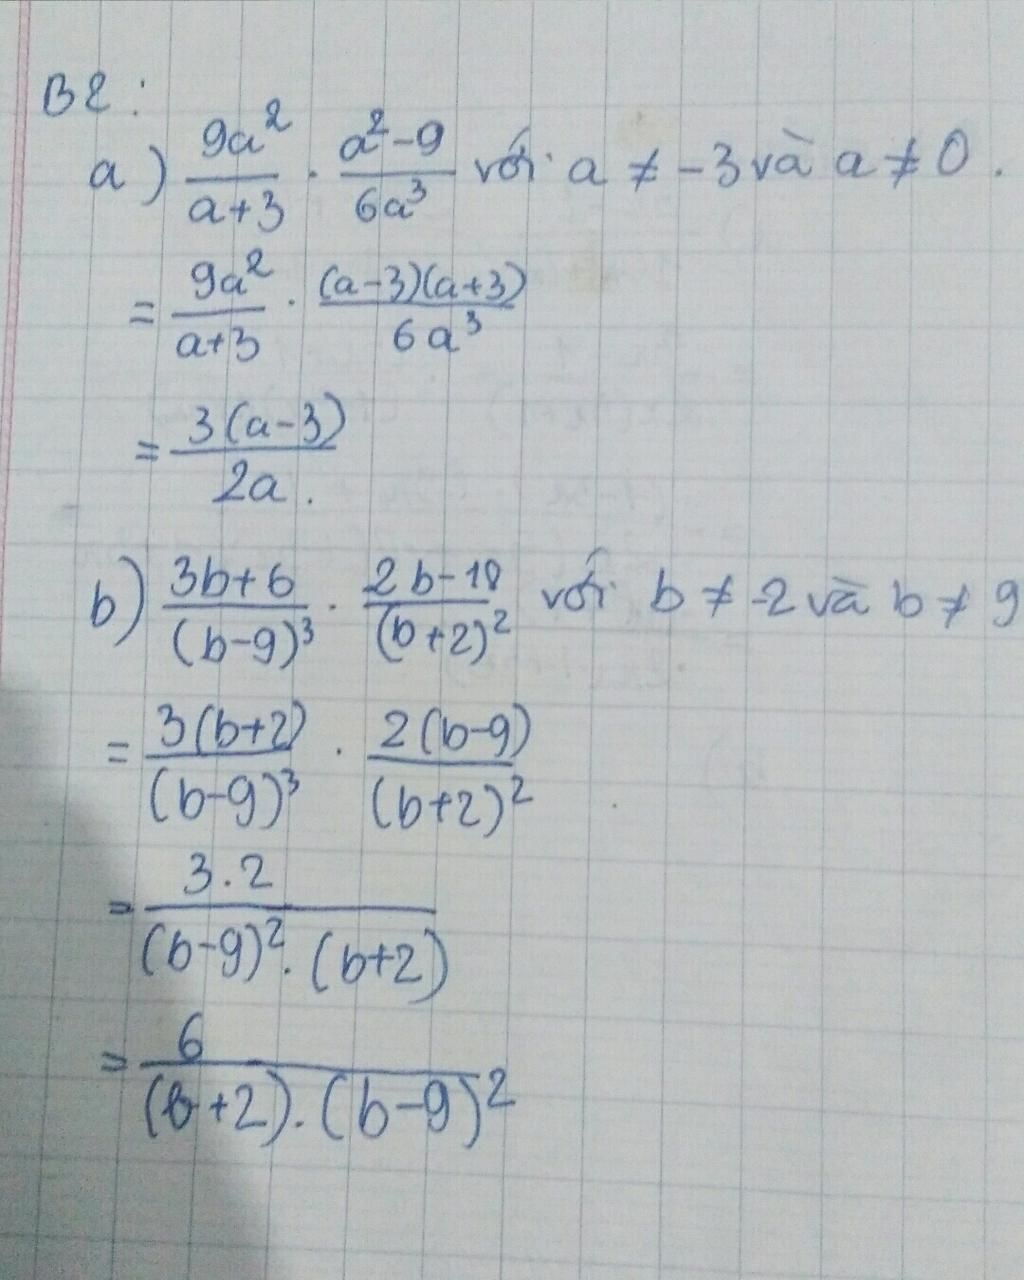 B2:
a) 9a²/(a+3) · (a²-9)/(6a³) với a ≠ -3 và a ≠ 0.
= 9a²/(a+3) · (a-3)(a+3)/(6a³)
= 3(a-3)/(2a).
b) (3b+6)/(b-9)³ · (2b-18)/(b+2)² với b ≠ -2 và b ≠ 9
= 3(b+2)/(b-9)³ · 2(b-9)/(b+2)²
= 3.2/((b-9)².(b+2))
= 6/((b+2).(b-9)²)